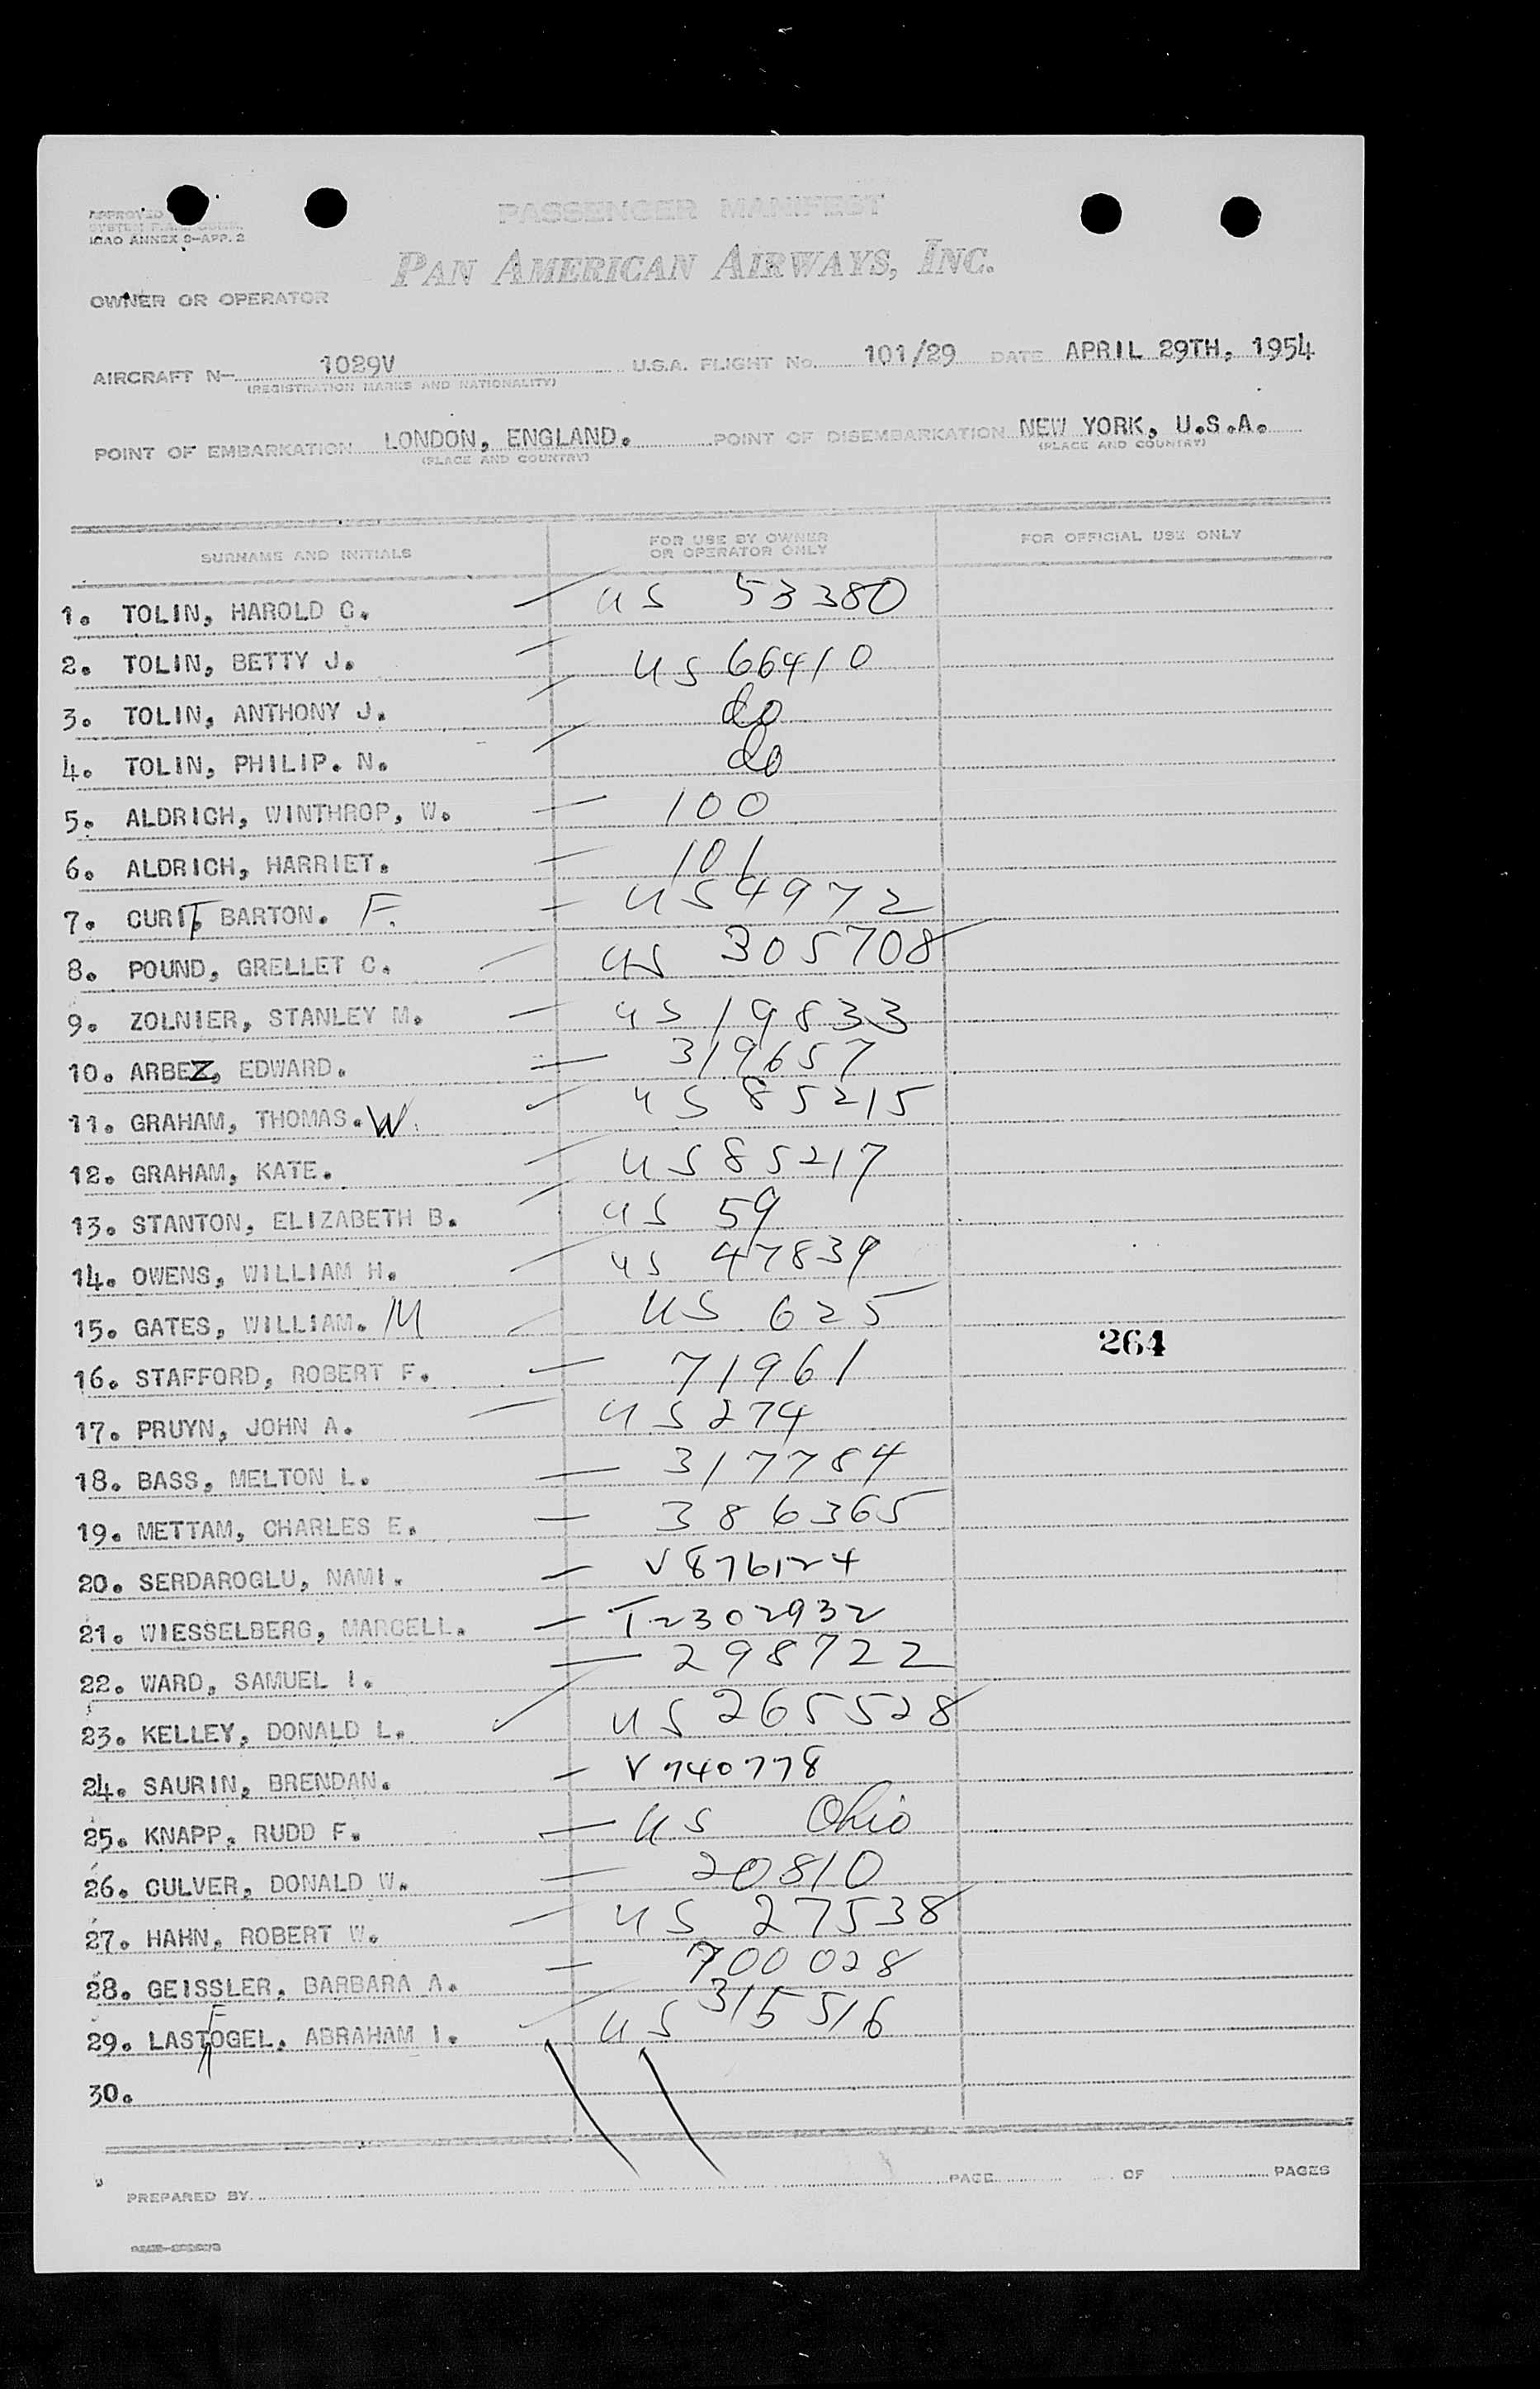 APPROVED
ICAO ANNEX 9-APP. 2
PASSENGER MANIFEST
PAN AMERICAN AIRWAYS, INC.
OWNER OR OPERATOR
AIRCRAFT N- 1029V U.S.A. FLIGHT No. 101/29 DATE APRIL 29TH, 1954
(REGISTRATION MARKS AND NATIONALITY)
POINT OF EMBARKATION LONDON, ENGLAND. POINT OF DISEMBARKATION NEW YORK, U.S.A.
(PLACE AND COUNTRY) (PLACE AND COUNTRY)
SURNAME AND INITIALS FOR USE BY OWNER OR OPERATOR ONLY FOR OFFICIAL USE ONLY
1. TOLIN, HAROLD C. US 53380
2. TOLIN, BETTY J. US 66410
3. TOLIN, ANTHONY J. do
4. TOLIN, PHILIP. N. do
5. ALDRICH, WINTHROP, W. 100
6. ALDRICH, HARRIET. 101
7. CURIT, BARTON. F. US 4972
8. POUND, GRELLET C. US 305708
9. ZOLNIER, STANLEY M. US 19833
10. ARBEZ, EDWARD. 319657
11. GRAHAM, THOMAS. W. US 85215
12. GRAHAM, KATE. US 85217
13. STANTON, ELIZABETH B. US 59
14. OWENS, WILLIAM H. US 47839
15. GATES, WILLIAM. M US 625
264
16. STAFFORD, ROBERT F. 71961
17. PRUYN, JOHN A. US 274
18. BASS, MELTON L. 317784
19. METTAM, CHARLES E. 386365
20. SERDAROGLU, NAMI. V876124
21. WIESSELBERG, MARCELL. T2302932
22. WARD, SAMUEL I. 298722
23. KELLEY, DONALD L. US 265528
24. SAURIN, BRENDAN. V740778
25. KNAPP, RUDD F. US Ohio
26. CULVER, DONALD W. 20810
27. HAHN, ROBERT W. US 27538
28. GEISSLER, BARBARA A. 700028
29. LASTFOGEL, ABRAHAM I. US 315516
30.
PREPARED BY PAGE OF PAGES